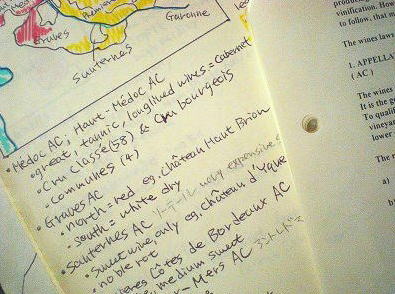 Garonne
Graves
Sauternes
• Médoc AC ; Haut-Médoc AC
- great, tannic, longlived wines = Cabernet
- Cru Classé (58) & Cru bourgeois
- communes (4)
• Graves AC
- north = red eg. château Haut Brion
- south = white dry
• Sauternes AC ソーテルヌ very expensive
- sweet wine, only eg. château d'Yque
- noble rot
Côtes de Bordeaux AC
medium sweet
- Mers AC
vinification. How
to follow, that m
The wines laws
1. APPELLA
( AC )
The wines
It is the g
To qualif
vineyar
lower
The r
a)